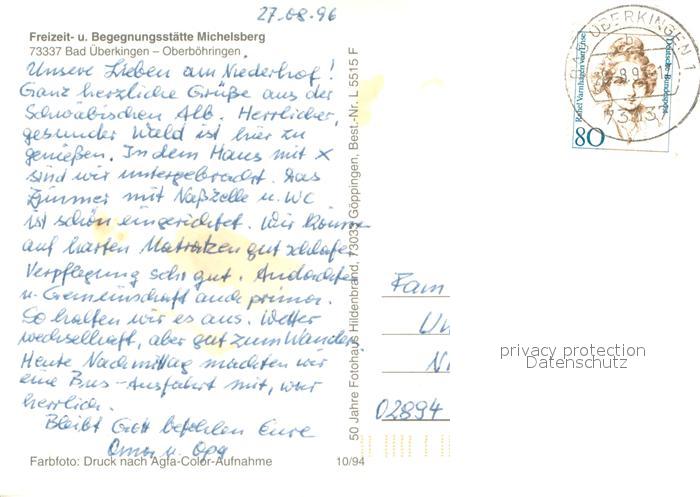 27.08.96
Freizeit- u. Begegnungsstätte Michelsberg
73337 Bad Überkingen – Oberböhringen
Unsere Lieben am Niederhof!
Ganz herzliche Grüße aus der
Schwäbischen Alb. Herrlicher,
gesunder Wald ist hier zu
genießen. In dem Haus mit X
sind wir untergebracht. Das
Zimmer mit Naßzelle u. WC
ist schön eingerichtet. Wir können
auf harten Matratzen gut schlafen
Verpflegung sehr gut. Andachten
u. Gemeinschaft auch prima.
So halten wir es aus. Wetter
wechselhaft, aber gut zum Wandern.
Heute Nachmittag machten wir
eine Bus-Ausfahrt mit, war
herrlich.
Bleibt Gott befohlen Eure
Oma u. Opa
Farbfoto: Druck nach Agfa-Color-Aufnahme
10/94
50 Jahre Fotohaus Hildenbrand, 73033 Göppingen, Best.-Nr. L 5515 F
BAD ÜBERKINGEN 1
b
73337
Rahel Varnhagen von Ense
Deutsche Bundespost
80
Fam
02894
privacy protection
Datenschutz